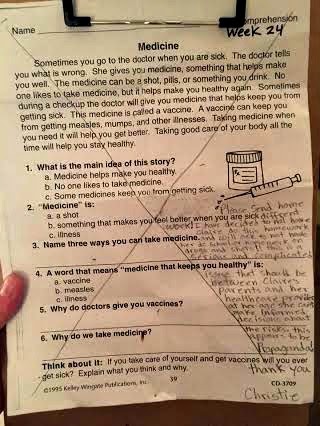 Name
omprehension
Week 24
Medicine
Sometimes you go to the doctor when you are sick. The doctor tells
you what is wrong. She gives you medicine, something that helps make
you well. The medicine can be a shot, pills, or something you drink. No
one likes to take medicine, but it helps make you healthy again. Sometimes
during a checkup the doctor will give you medicine that helps keep you from
getting sick. This medicine is called a vaccine. A vaccine can keep you
from getting measles, mumps, and other illnesses. Taking medicine when
you need it will help you get better. Taking good care of your body all the
time will help you stay healthy.
1. What is the main idea of this story?
a. Medicine helps make you healthy.
b. No one likes to take medicine.
c. Some medicines keep you from getting sick.
2. "Medicine" is:
a. a shot
b. something that makes you feel better when you are sick
c. illness
3. Name three ways you can take medicine.
4. A word that means "medicine that keeps you healthy" is:
a. vaccine
b. measles
c. illness
5. Why do doctors give you vaccines?
6. Why do we take medicine?
Think about it: If you take care of yourself and get vaccines will you ever
get sick? Explain what you think and why.
©1995 Kelley Wingate Publications, Inc.
39
CD-3709
Please send home
different
work! I have decided to not have
Claire do this homework
serious and complicated
issue that should be
between Claire's
Parents and her
healthcare provider
make informed
decisions about
the risks. this
appears to be
Propaganda!
thank you
Christie